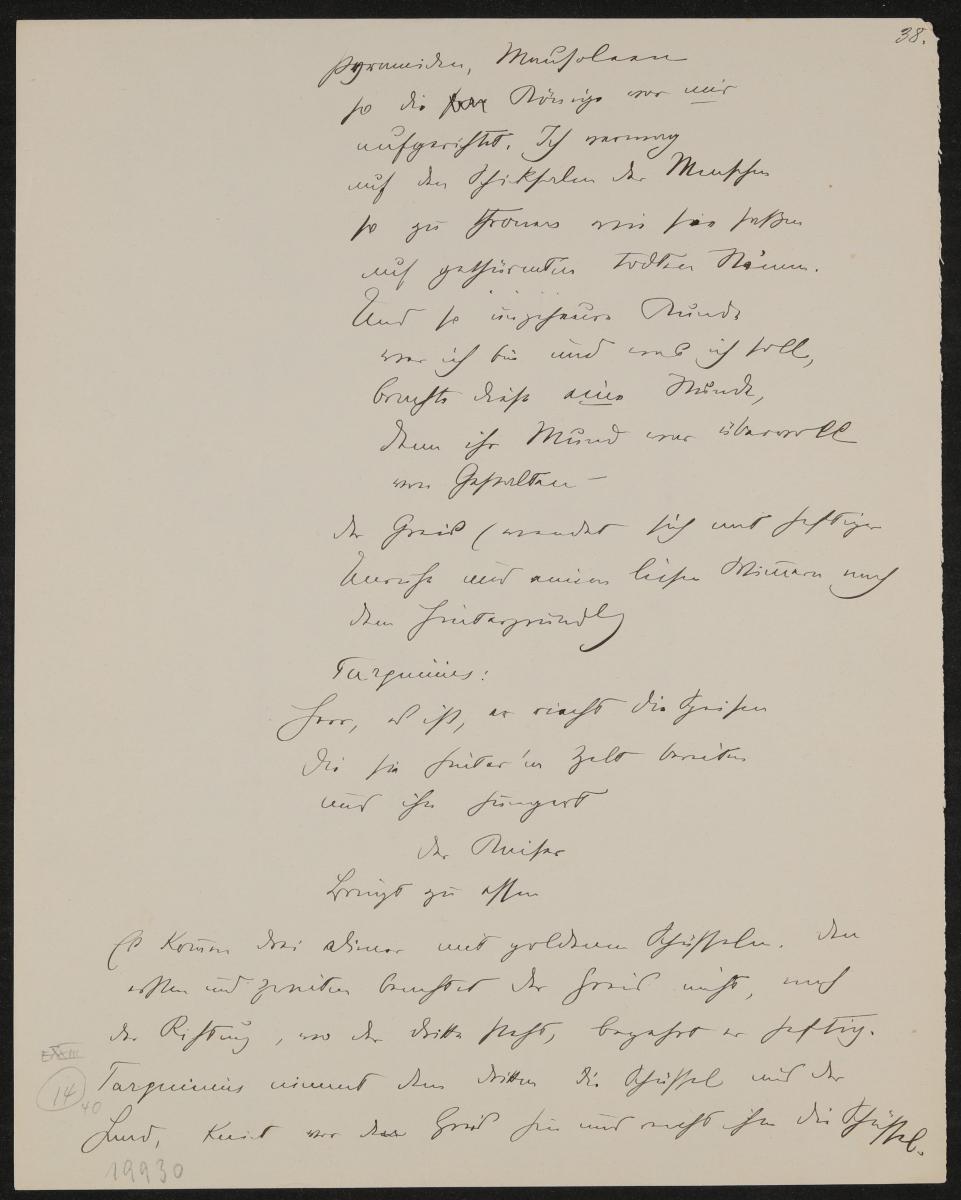 38.
Pyramiden, Mausoleen
so die Könige vor mir
aufgerichtet. Ich vermag
auf den Schiksalen der Menschen
so zu thronen wie sie saßen
auf gethürmten todten Steinen.
Und so ungeheure Kunde
wer ich bin und was ich soll,
brachte diese eine Stunde,
denn ihr Mund war übervoll
von Gestalten –
der Greis (wendet sich mit heftiger
Unruhe und einem leisen Wim̅ern nach
dem Hintergrund)
Tarquinius:
Herr, es ist, er riecht die Speisen
die sie hinter'm Zelt bereiten
und ihn hungert
der Kaiser
Bringt zu essen
Es kom̅en drei Diener mit goldenen Schüsseln. den
ersten und zweiten beachtet der Greis nicht, nach
der Richtung, wo der dritte steht, begehrt er heftig.
Tarquinius nimmt dem dritten die Schüssel aus der
Hand, kniet vor dem Greis hin und reicht ihm die Schüssel.
14
40
19930